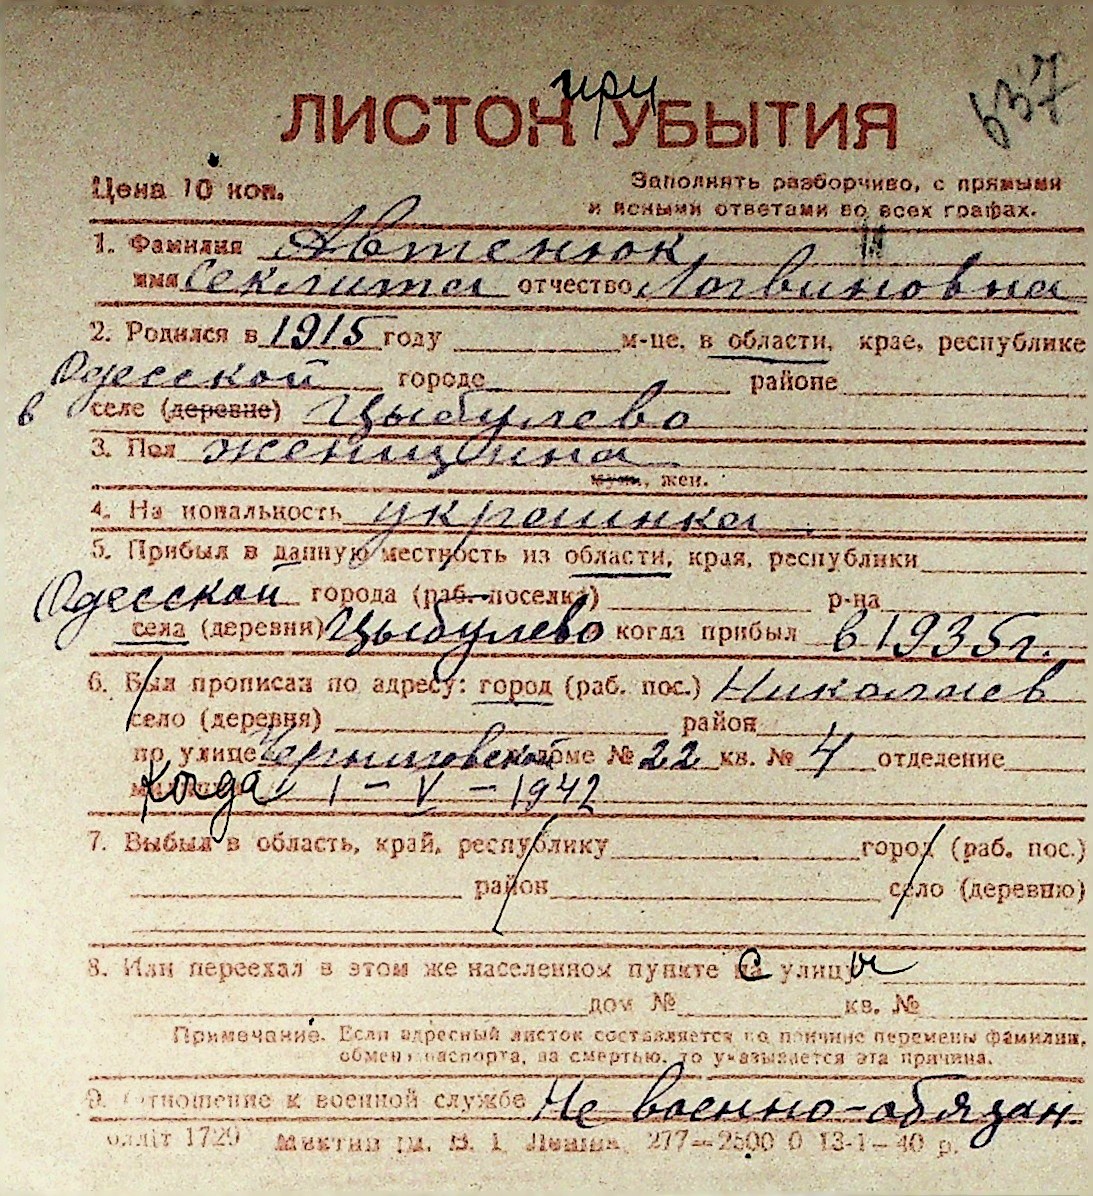 при
ЛИСТОК УБЫТИЯ
637
Цена 10 коп.
Заполнять разборчиво, с прямыми
и ясными ответами во всех графах.
1. Фамилия Автенюк
имя Секлита отчество Логвиновна
2. Родился в 1915 году м-це, в области, крае, республике
Одесской городе районе
в селе (деревне) Цыбулево
3. Пол женщина
муж., жен.
4. На иональность украинка
5. Прибыл в данную местность из области, края, республики
Одесской города (раб. поселка) р-на
села (деревни) Цыбулево когда прибыл в 1935 г.
6. Был прописан по адресу: город (раб. пос.) Николаев
село (деревня) район
по улице Черниговской доме № 22 кв. № 4 отделение
когда 1 - V - 1942
7. Выбыл в область, край, республику город (раб. пос.)
район село (деревню)
8. Или переехал в этом же населенном пункте с улицы
дом № кв. №
Примечание. Если адресный листок составляется по причине перемены фамилии,
обмен паспорта, за смертью, то указывается эта причина.
9. Отношение к военной службе Не военно-обязан.
1720 277—2500 0 13-1-40 р.